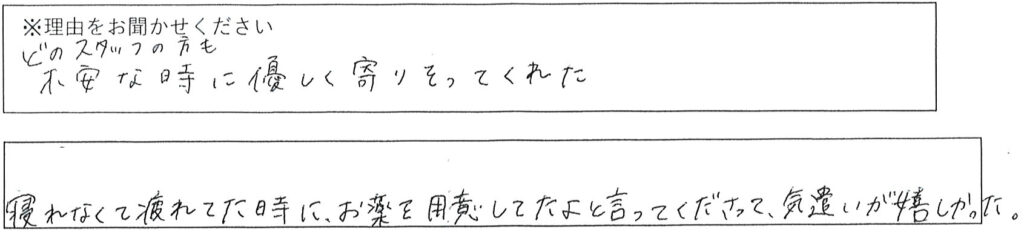 ※理由をお聞かせください
どのスタッフの方も
不安な時に優しく寄りそってくれた
寝れなくて疲れてた時に、お薬を用意してたよと言ってくださって、気遣いが嬉しかった。